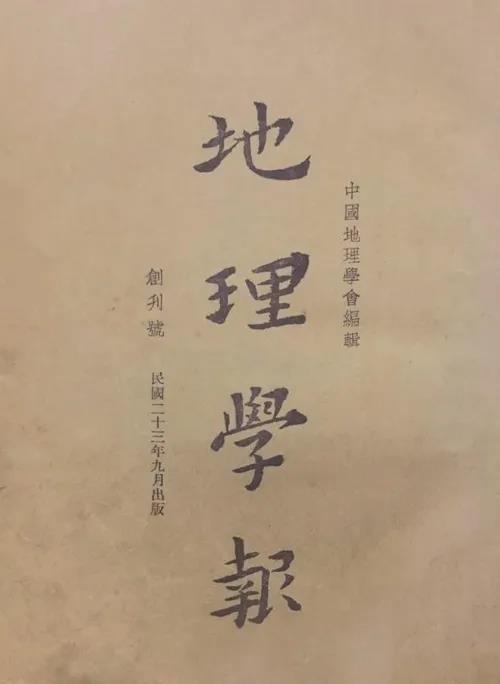 中國地理學會編輯
地理學報
創刊號
民國二十三年九月出版